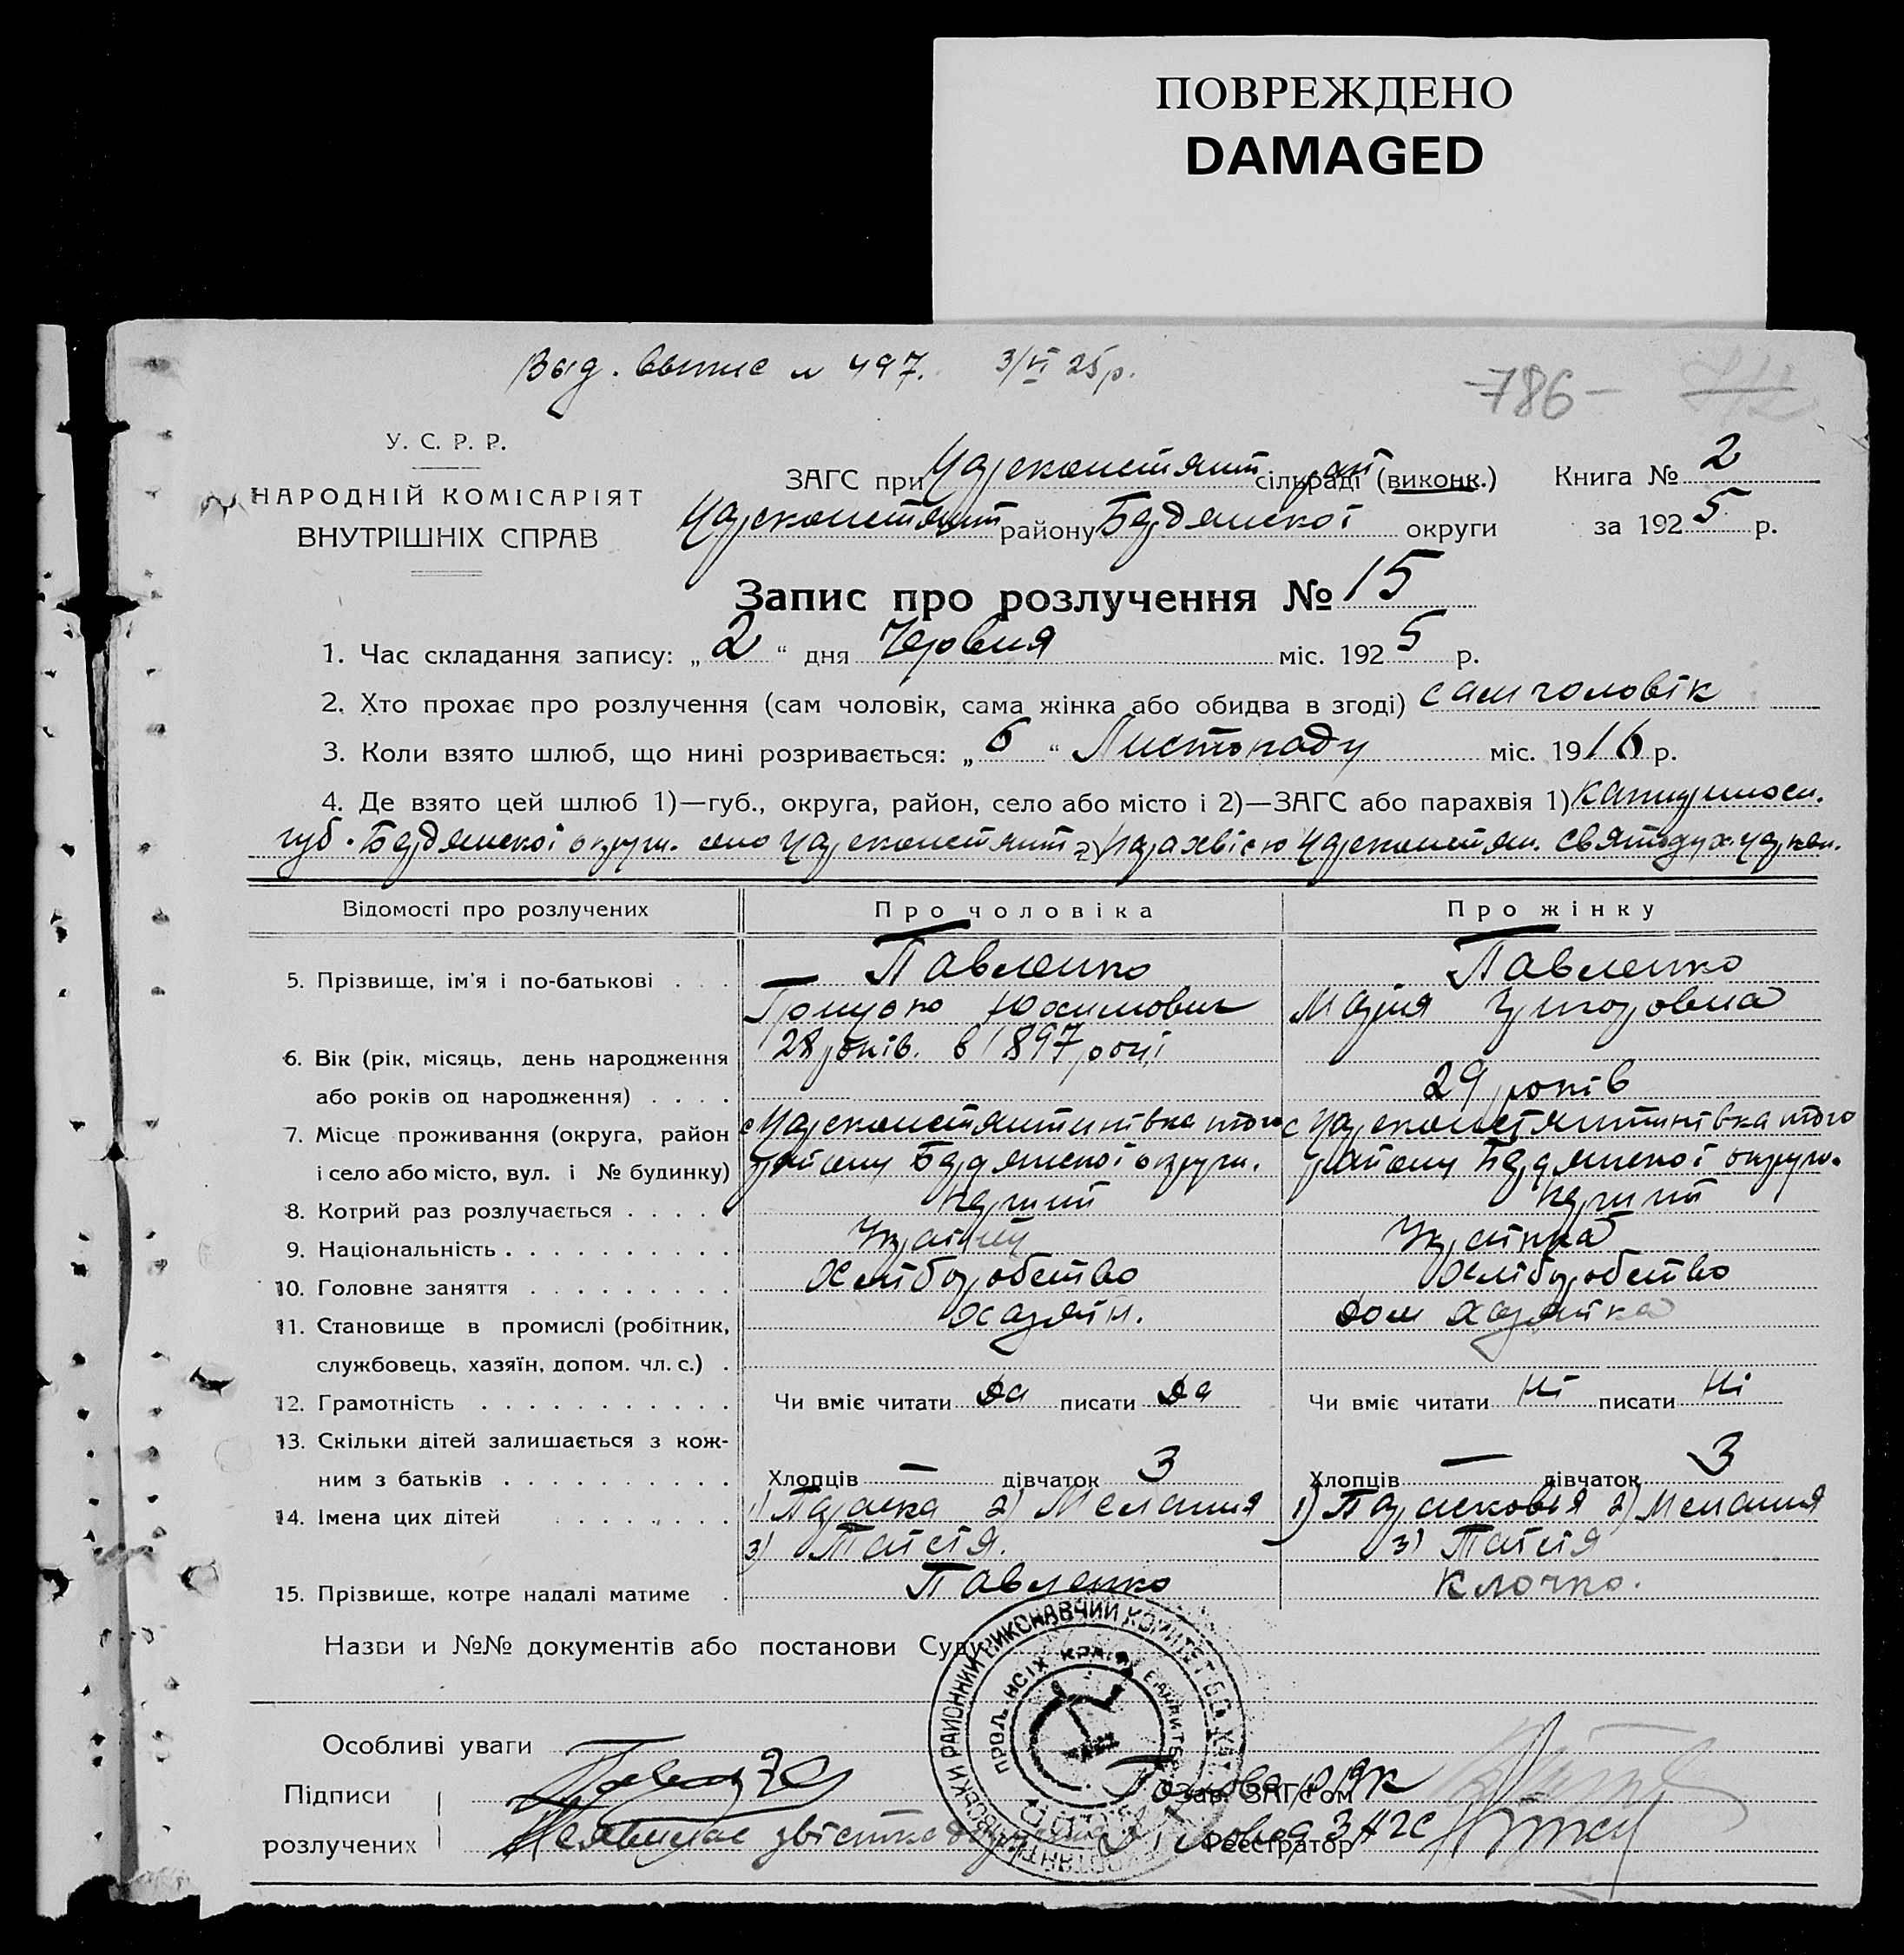 ПОВРЕЖДЕНО
DAMAGED
Выд. выпис № 497. 3/VI 25 р.
-786-
У. С. Р. Р.
НАРОДНІЙ КОМІСАРІЯТ
ВНУТРІШНІХ СПРАВ
ЗАГС при Царсконстянт сільраді рай (виконк.) Книга № 2
Царсконстянт району Бердянської округи за 1925 р.
Запис про розлучення № 15
1. Час складання запису: „2“ дня Червня міс. 1925 р.
2. Хто прохає про розлучення (сам чоловік, сама жінка або обидва в згоді) сам чоловік
3. Коли взято шлюб, що нині розривається: „6“ Листопаду міс. 1916 р.
4. Де взято цей шлюб 1)—губ., округа, район, село або місто і 2)—ЗАГС або парахвія 1)
губ. Бердянської округи. село Царсконстянт 2) Парахвією Царсконстян. Святодух. церкви.
Відомості про розлучених Про чоловіка Про жінку
5. Прізвище, ім'я і по-батькові . . . Павленко Павленко
Грицько Юхимович Марія Григоровна
6. Вік (рік, місяць, день народження 28 років. в 1897 році
або років од народження) . . . . 29 років
7. Місце проживання (округа, район с Царсконстянтинівка того с Царсконстянтинівка того
і село або місто, вул. і № будинку) району Бердянської округи. району Бердянської округи.
8. Котрий раз розлучається . . . . . перший перший
9. Національність . . . . . . . . . . Українец Українка
10. Головне заняття . . . . . . . . . Хліборобство Хліборобство
11. Становище в промислі (робітник, хазяїн. дом хазяйка
службовець, хазяїн, допом. чл. с.) .
12. Грамотність . . . . . . . . . . . Чи вміє читати да писати да Чи вміє читати ні писати ні
13. Скільки дітей залишається з кож-
ним з батьків . . . . . . . . . . Хлопців — дівчаток 3 Хлопців — дівчаток 3
14. Імена цих дітей . . . . . . . . 1) Параска 2) Мелання 1) Парасковья 2) Мелання
3) Таїсія. 3) Таїсія
15. Прізвище, котре надалі матиме . Павленко Клочко.
Назви и №№ документів або постанови Суду
Особливі уваги
Підписи
розлучених
Зав. ЗАГС'ом
Реєстратор
РАЙОННИЙ ВИКОНАВЧИЙ КОМИТЕТ
ПРОЛ. ВСІХ КРАЇН ЕДНАЙТЕСЬ